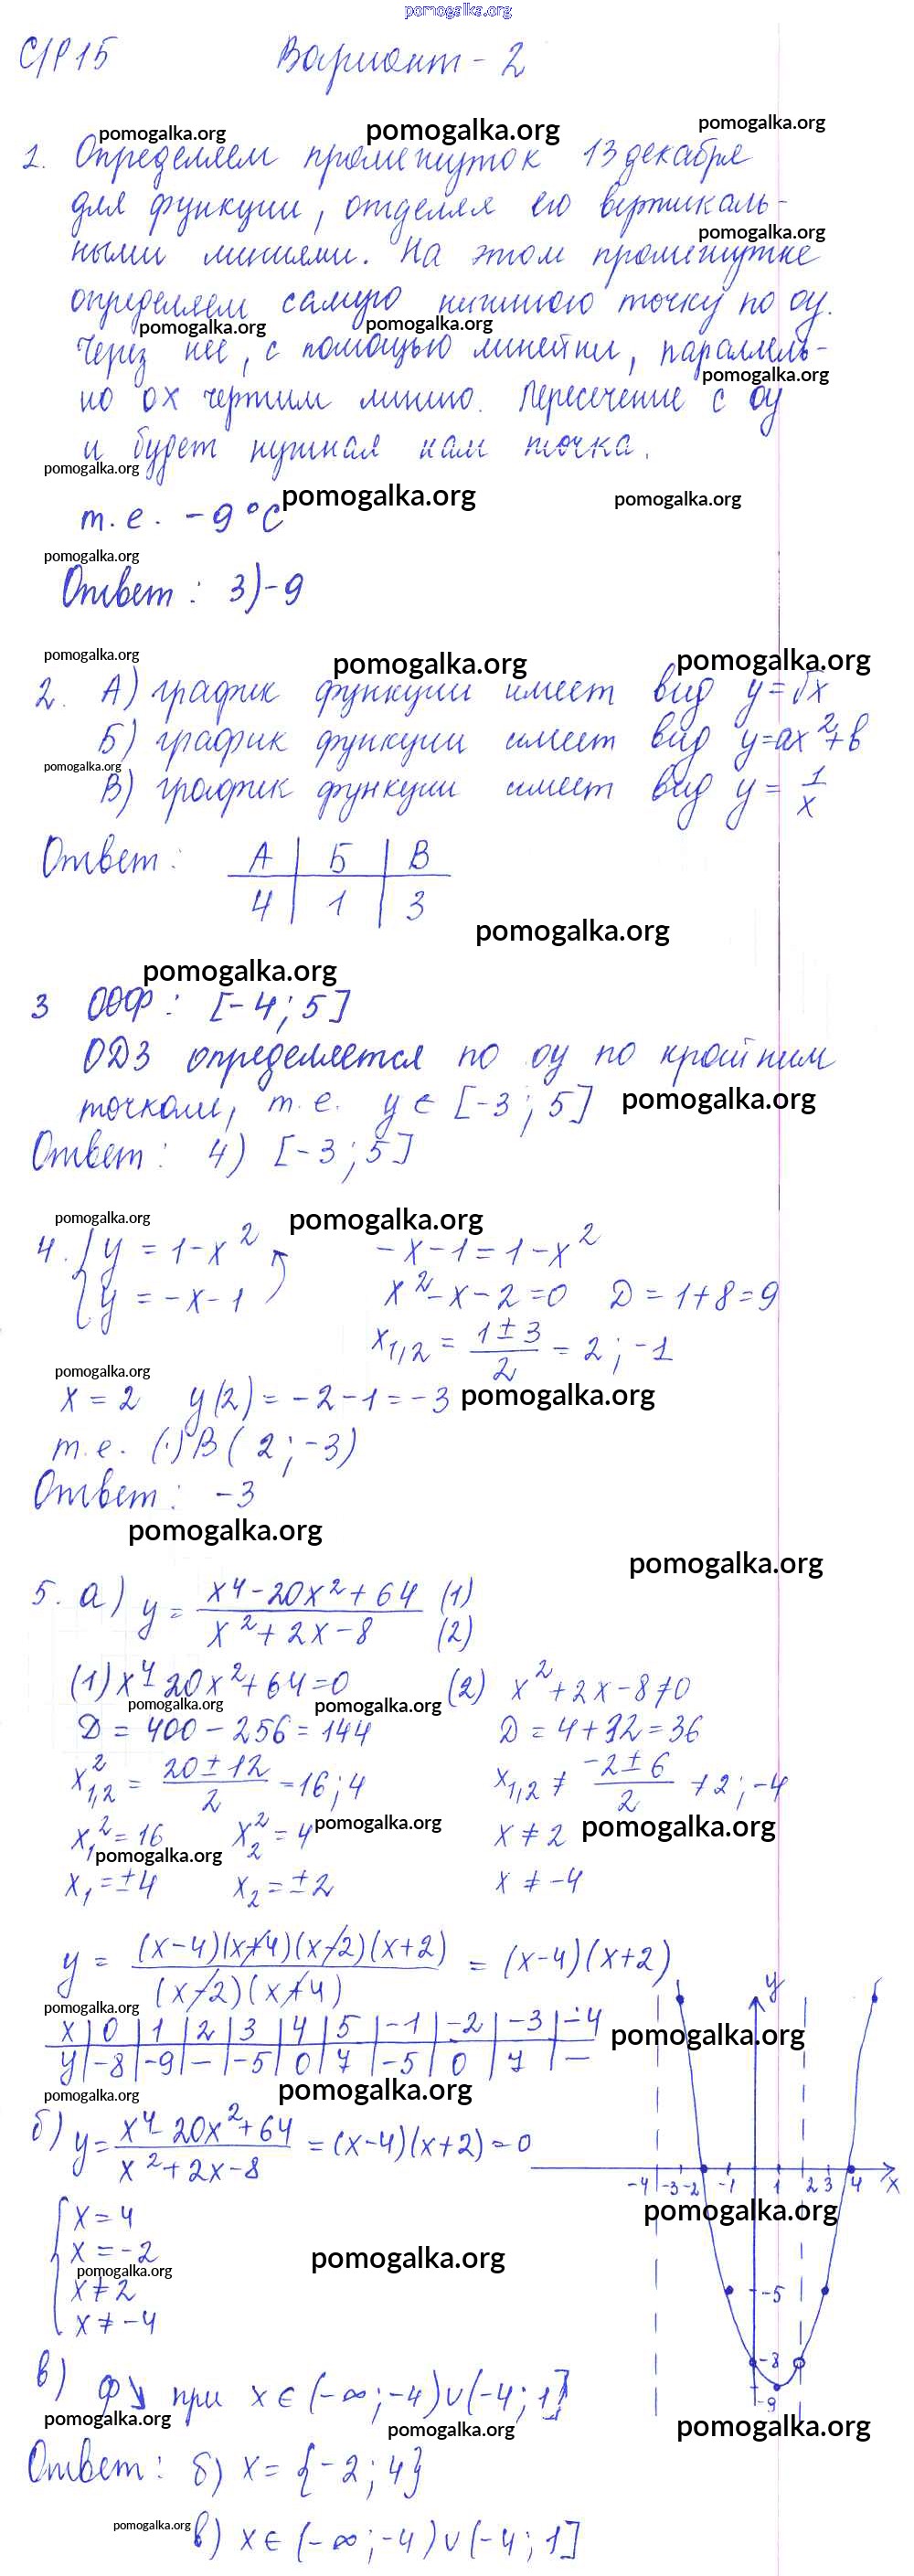 pomogalka.org
С/Р 15 Вариант - 2
pomogalka.org pomogalka.org pomogalka.org
1. Определяем промежуток 13 декабря
для функции, отделяя его вертикаль-
pomogalka.org
ными линиями. На этом промежутке
определяем самую нижнюю точку по оу.
pomogalka.org pomogalka.org
Через нее, с помощью линейки, параллель-
pomogalka.org
но ох чертим линию. Пересечение с оу
и будет нужная нам точка.
pomogalka.org
pomogalka.org pomogalka.org
т.е. -9°С
pomogalka.org
Ответ: 3) -9
pomogalka.org pomogalka.org pomogalka.org
2. А) график функции имеет вид y=√x
Б) график функции имеет вид y=ax²+b
pomogalka.org
В) график функции имеет вид y = 1/x
Ответ: А | Б | В
4 | 1 | 3
pomogalka.org
pomogalka.org
3 ООФ: [-4; 5]
ОДЗ определяется по оу по крайним
точкам, т.е. y ∈ [-3; 5] pomogalka.org
Ответ: 4) [-3; 5]
pomogalka.org pomogalka.org
4. { y = 1-x² -x-1 = 1-x²
{ y = -x-1 x²-x-2=0 D = 1+8=9
x1,2 = (1±3)/2 = 2; -1
pomogalka.org
x = 2 y(2) = -2-1 = -3 pomogalka.org
т.е. (·) B (2; -3)
Ответ: -3
pomogalka.org
pomogalka.org
5. а) y = (x⁴-20x²+64)/(x²+2x-8) (1) (2)
(1) x⁴-20x²+64=0 (2) x²+2x-8≠0
pomogalka.org pomogalka.org
D = 400-256=144 D = 4+32=36
x²1,2 = (20±12)/2 = 16; 4 x1,2 ≠ (-2±6)/2 ≠ 2; -4
x1²=16 x2²=4 pomogalka.org x ≠ 2 pomogalka.org
pomogalka.org
x1=±4 x2=±2 x ≠ -4
y = (x-4)(x+4)(x-2)(x+2)/(x-2)(x+4) = (x-4)(x+2)
pomogalka.org
x | 0 | 1 | 2 | 3 | 4 | 5 | -1 | -2 | -3 | -4
pomogalka.org
y | -8 | -9 | - | -5 | 0 | 7 | -5 | 0 | 7 | -
pomogalka.org pomogalka.org
б) y = (x⁴-20x²+64)/(x²+2x-8) = (x-4)(x+2) = 0
{ x = 4
x = -2
pomogalka.org pomogalka.org
x ≠ 2
x ≠ -4
y
-4 -3 -2 -1 1 2 3 4 x
pomogalka.org
-5
-8
-9
в) ф↘ при x ∈ (-∞; -4) ∪ (-4; 1]
pomogalka.org pomogalka.org pomogalka.org
Ответ: б) x = {-2; 4}
pomogalka.org
в) x ∈ (-∞; -4) ∪ (-4; 1]